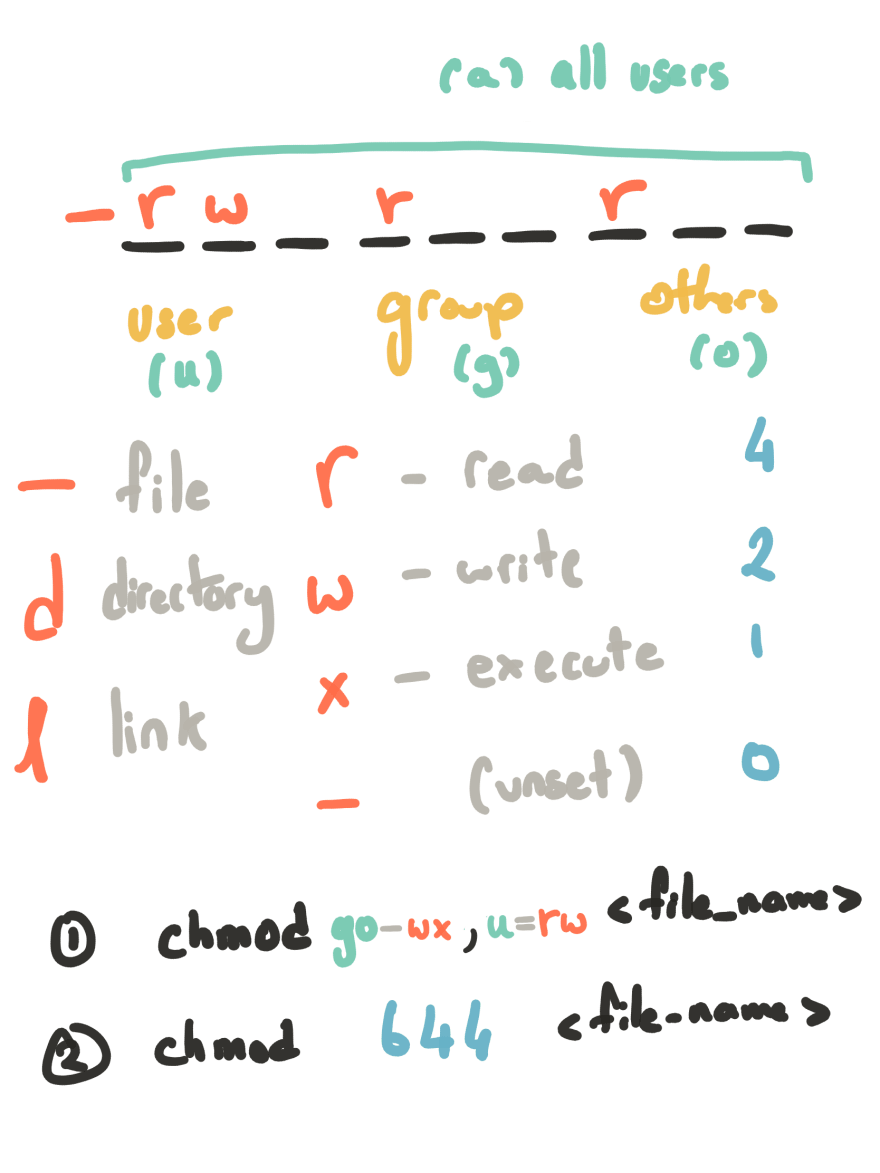 (a) all users
- r w r r
_ _ _ _ _ _ _ _ _
user group others
(u) (g) (o)
- file r - read 4
d directory w - write 2
l link x - execute 1
- (unset) 0
① chmod go-wx, u=rw <file_name>
② chmod 644 <file-name>